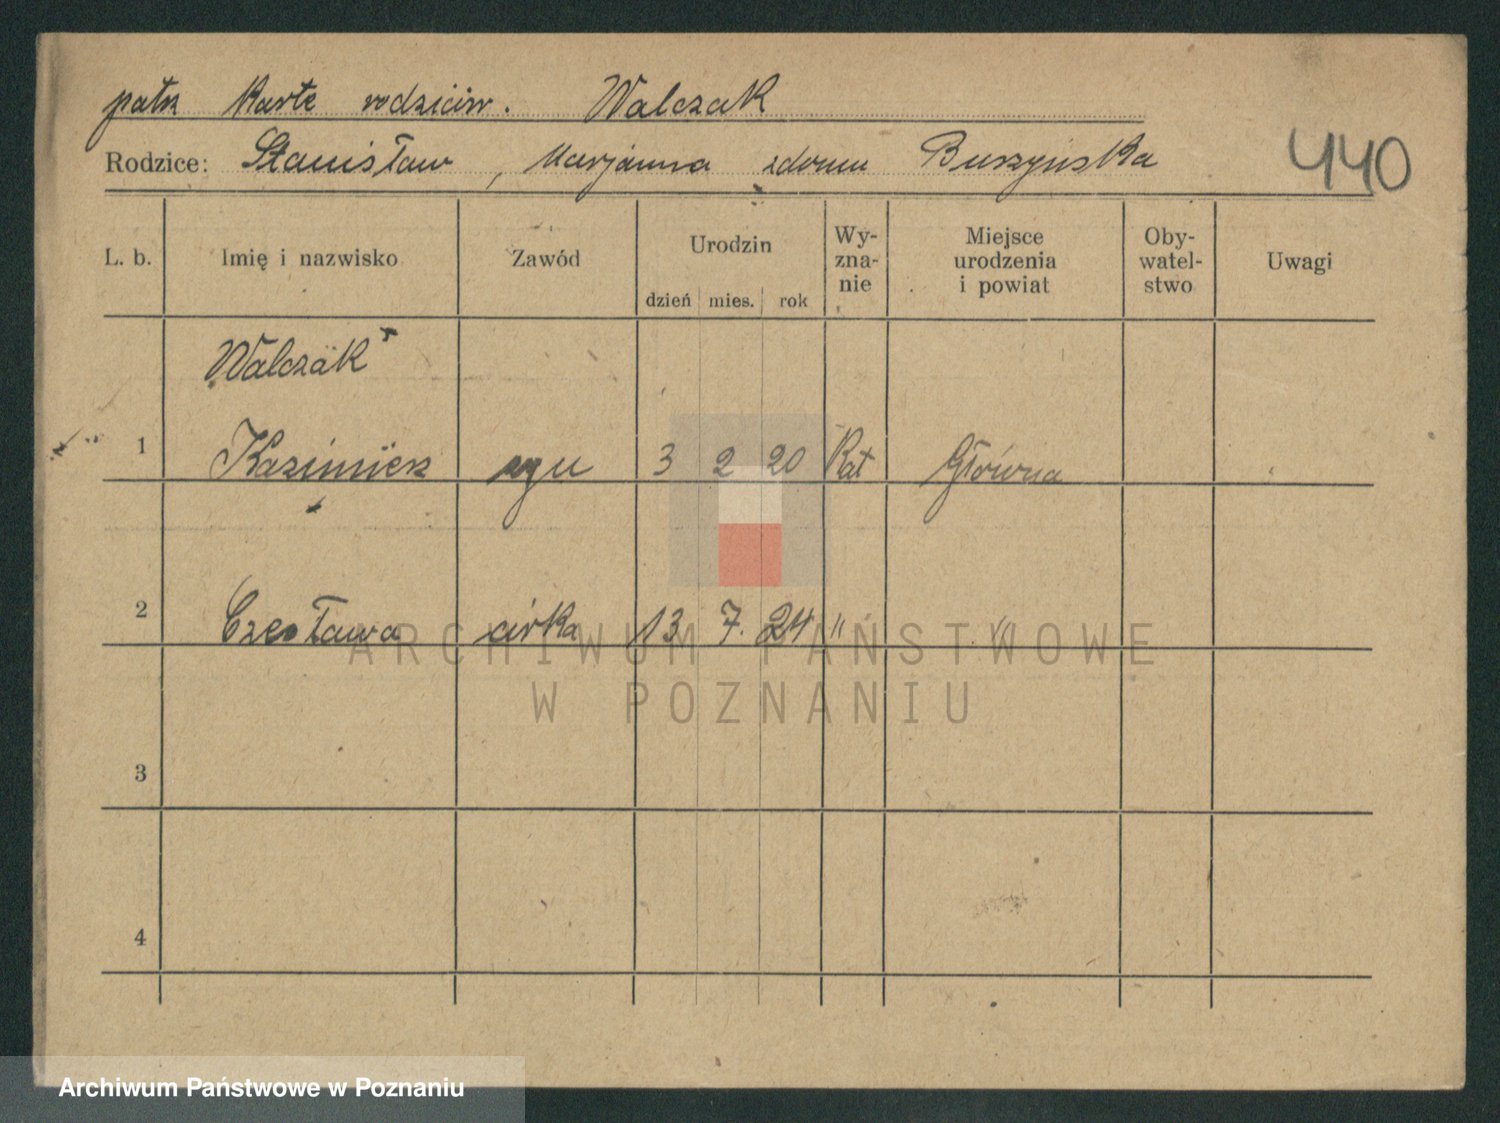 patrz Kartę rodziców. Walczak
Rodzice: Stanisław, Marjanna zdomu Buszyńska
440
L. b. Imię i nazwisko Zawód Urodzin dzień mies. rok Wy-zna-nie Miejsce urodzenia i powiat Oby-watel-stwo Uwagi
Walczak
1 Kazimierz 3 2 20 Kat Główna
2 Czesława córka 13 7. 24 " "
3
4
ARCHIWUM PAŃSTWOWE
W POZNANIU
Archiwum Państwowe w Poznaniu